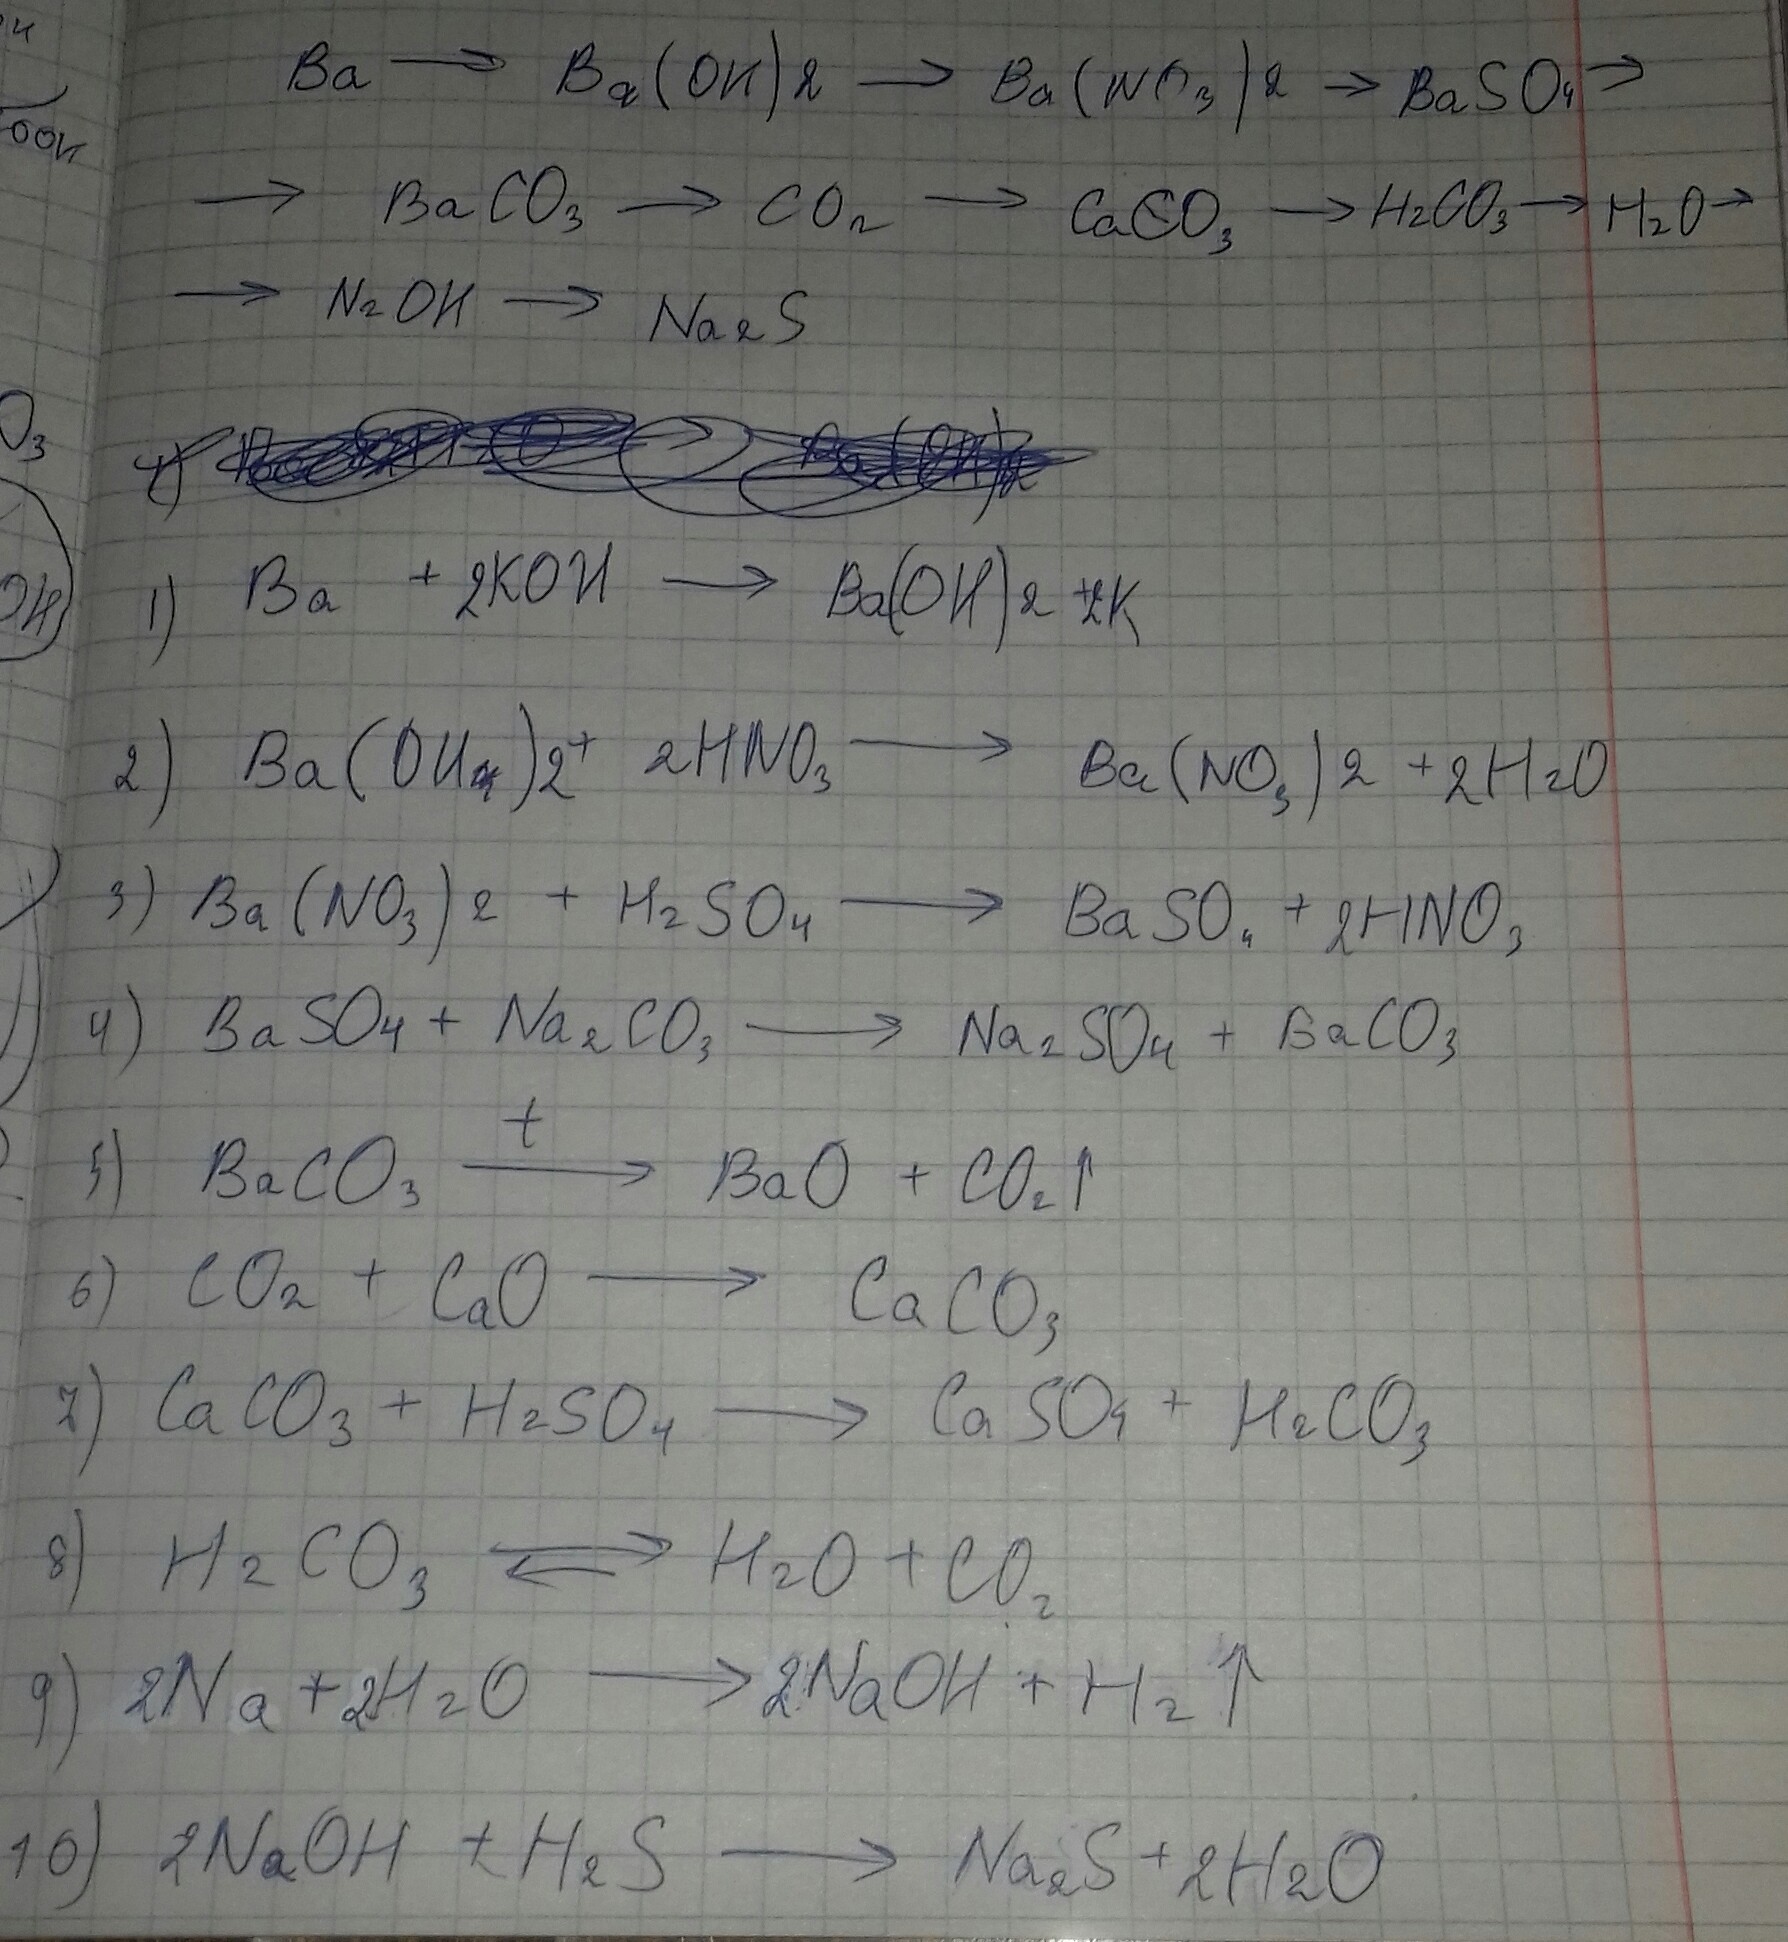 Ba → Ba(OH)2 → Ba(NO3)2 → BaSO4 →
→ BaCO3 → CO2 → CaCO3 → H2CO3 → H2O →
→ N2OH → Na2S
1) Ba + 2KOH → Ba(OH)2 + 2K
2) Ba(OH)2 + 2HNO3 → Ba(NO3)2 + 2H2O
3) Ba(NO3)2 + H2SO4 → BaSO4 + 2HNO3
4) BaSO4 + Na2CO3 → Na2SO4 + BaCO3
t
5) BaCO3 → BaO + CO2↑
6) CO2 + CaO → CaCO3
7) CaCO3 + H2SO4 → CaSO4 + H2CO3
8) H2CO3 ⇄ H2O + CO2
9) 2Na + 2H2O → 2NaOH + H2↑
10) 2NaOH + H2S → Na2S + 2H2O